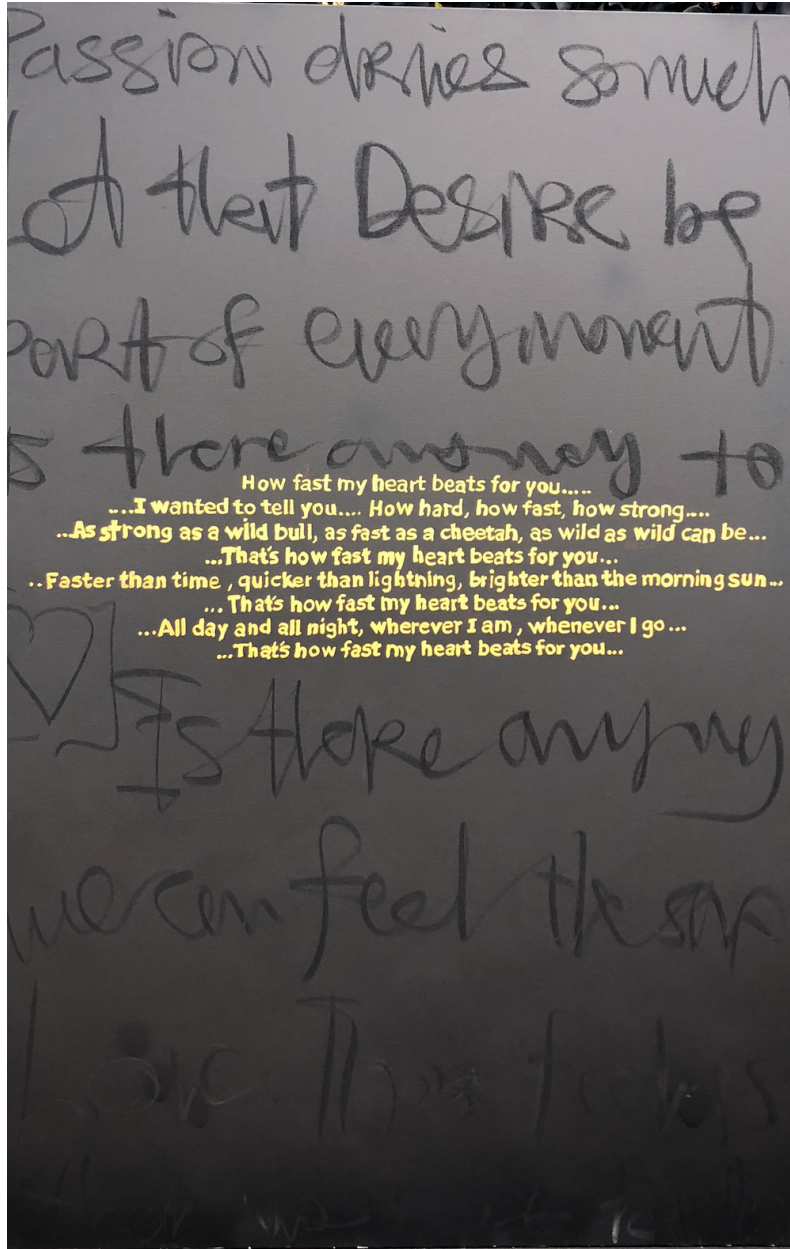 Passion drives so much
Let that Desire be
part of every moment
Is there anyway to
How fast my heart beats for you.....
....I wanted to tell you.... How hard, how fast, how strong....
...As strong as a wild bull, as fast as a cheetah, as wild as wild can be...
...That's how fast my heart beats for you...
..Faster than time , quicker than lightning, brighter than the morning sun...
... That's how fast my heart beats for you...
...All day and all night, wherever I am , whenever I go...
...That's how fast my heart beats for you...
Is there any
we can feel the
Love